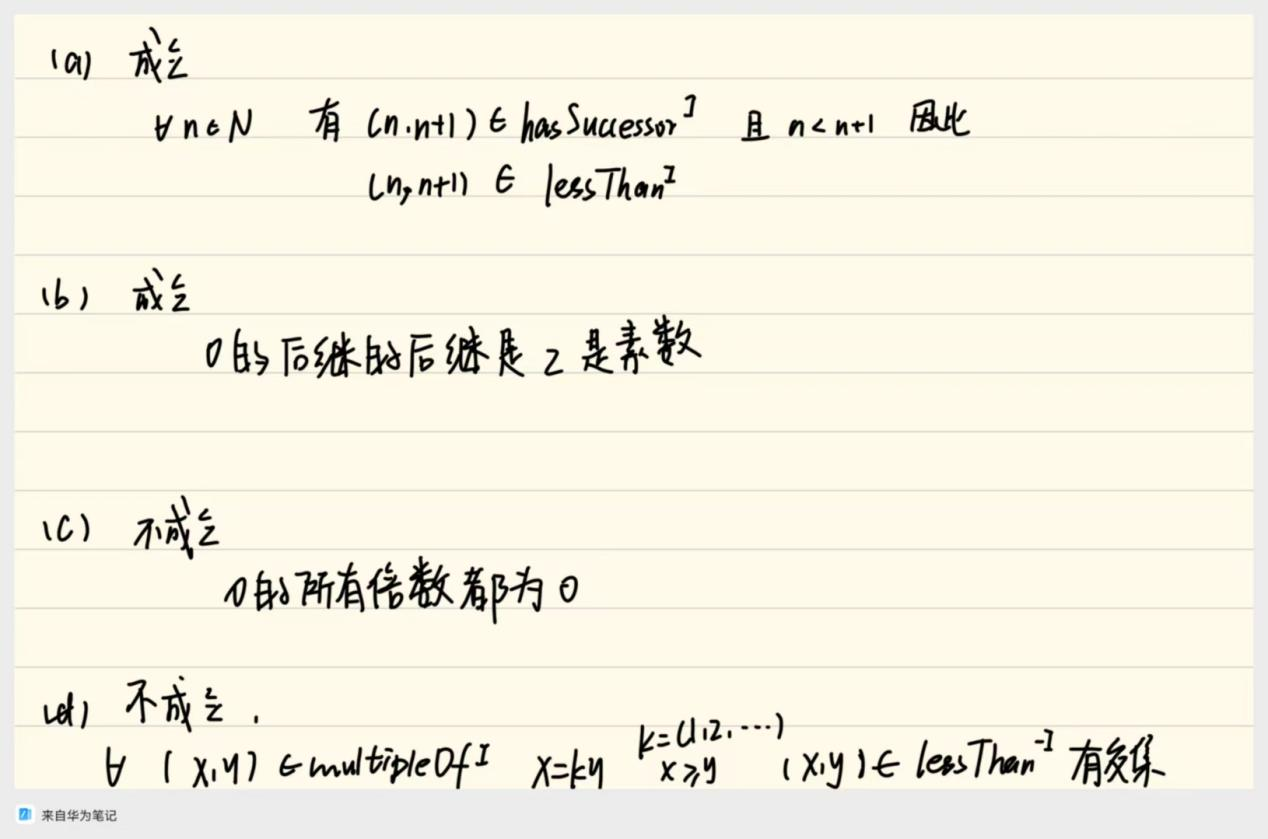 (a) 成立
∀ n∈N 有 (n,n+1) ∈ hasSuccessor^I 且 n<n+1 因此
(n,n+1) ∈ lessThan^I
(b) 成立
0的后继的后继是 2 是素数
(c) 不成立
0的所有倍数都为 0
(d) 不成立.
∀ (x,y) ∈ multipleOf^I x=ky k=(1,2,...) x≥y (x,y)∈ lessThan^-I 有交集
来自华为笔记